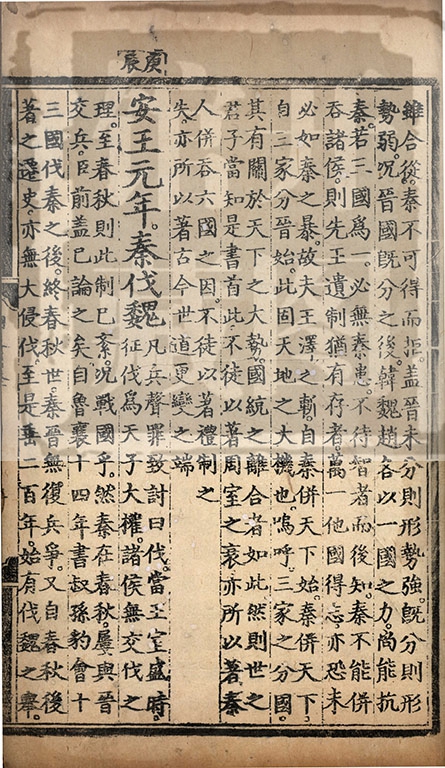 庚辰
雖合從秦不可得而拒蓋晉未分則形勢強旣分則形
勢弱況晉國旣分之後韓魏趙各以一國之力尚能抗
秦若三國爲一必無秦患不待智者而後知秦不能併
吞諸侯則先王遺制猶有存者萬一他國得志亦恐未
必如秦之暴故夫王澤之斬自秦併天下始秦併天下
自三家分晉始此固天地之大機也嗚呼三家之分國
其有關於天下之大勢國統之離合者如此然則世之
君子當知是書首此不徒以著周室之衰亦所以著秦
人併吞六國之因不徒以著禮制之
失亦所以著古今世道更變之端
安王元年秦伐魏
凡兵聲罪致討曰伐當王室盛時
征伐爲天子大權諸侯無交伐之
理至春秋則此制已紊況戰國乎然秦在春秋屢與晉
交兵臣前蓋已論之矣自魯襄十四年書叔孫豹會十
三國伐秦之後終春秋世秦晉無復兵爭又自春秋後
著之遷史亦無大侵伐至是垂一百年始有伐魏之舉